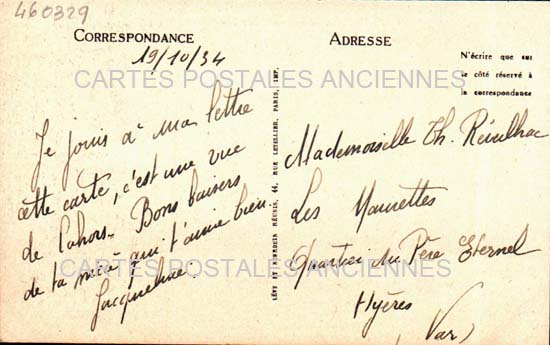 460329
CORRESPONDANCE
19/10/34
Je joins à ma lettre
cette carte, c'est une vue
de Cahors - Bons baisers
de ta nièce qui t'aime bien.
Jacqueline.
LÉVY ET NEURDEIN RÉUNIS, 44, RUE LETELLIER, PARIS, IMP.
ADRESSE
N'écrire que sur
le côté réservé à
la correspondance
Mademoiselle Th.
Les Maurettes
Quartier du Père Eternel
Hyères
(Var)
CARTES POSTALES ANCIENNES
CARTES POSTALES ANCIENNES